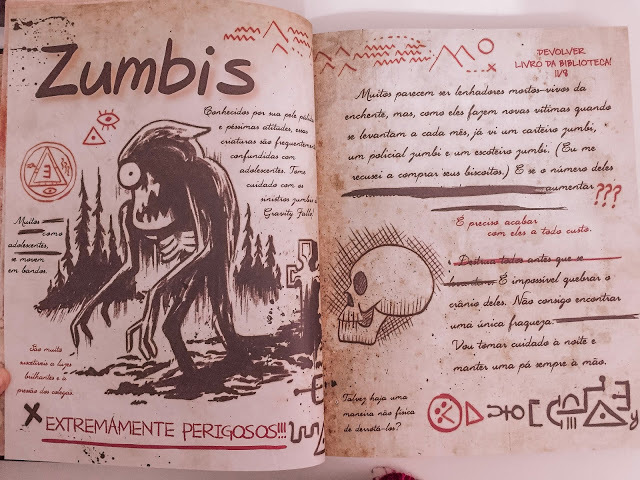 Zumbis
Conhecidos por sua pele pálida
e péssimas atitudes, essas
criaturas são frequentemente
confundidas com
adolescentes. Tome
cuidado com os
sinistros zumbis de
Gravity Falls!
Muitos
como
adolescentes,
se movem
em bandos.
São muito
suscetíveis a luzes
brilhantes e à
pressão dos colegas.
X EXTREMAMENTE PERIGOSOS!!!
DEVOLVER
LIVRO DA BIBLIOTECA!
11/8
Muitos parecem ser lenhadores mortos-vivos da
enchente, mas, como eles fazem novas vítimas quando
se levantam a cada mês, já vi um carteiro zumbi,
um policial zumbi e um escoteiro zumbi. (Eu me
recusei a comprar seus biscoitos.) E se o número deles
aumentar
???
É preciso acabar
com eles a todo custo.
Destrua todos antes que se
É impossível quebrar o
crânio deles. Não consigo encontrar
uma única fraqueza.
Vou tomar cuidado à noite e
manter uma pá sempre à mão.
Talvez haja uma
maneira não física
de derrotá-los?